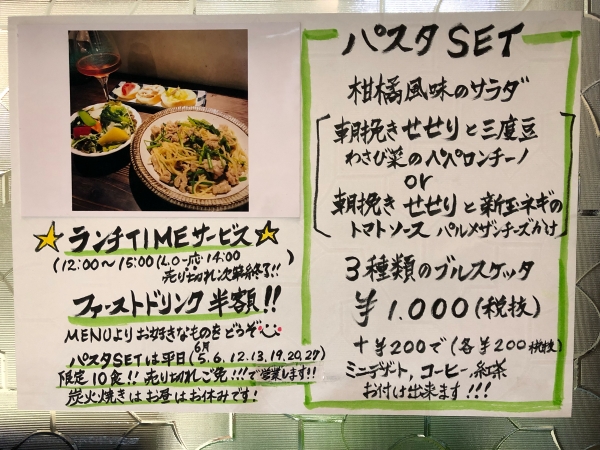 ☆ランチTIMEサービス☆
(12:00〜15:00(L.O一応14:00)
売り切れ次第終了!!
ファーストドリンク半額!!
MENUよりお好きなものをどうぞ
6月
パスタSETは平日(5.6.12.13.19.20.27)
限定10食!! 売り切れご免!!!で営業します!!
炭火焼きはお昼はお休みです!
パスタSET
柑橘風味のサラダ
朝挽きせせりと三度豆
わさび菜のペペロンチーノ
or
朝挽きせせりと新玉ネギの
トマトソース パルメザンチーズがけ
3種類のブルスケッタ
¥1.000(税抜)
+¥200で(各¥200税抜)
ミニデザート,コーヒー,紅茶
お付け出来ます!!!